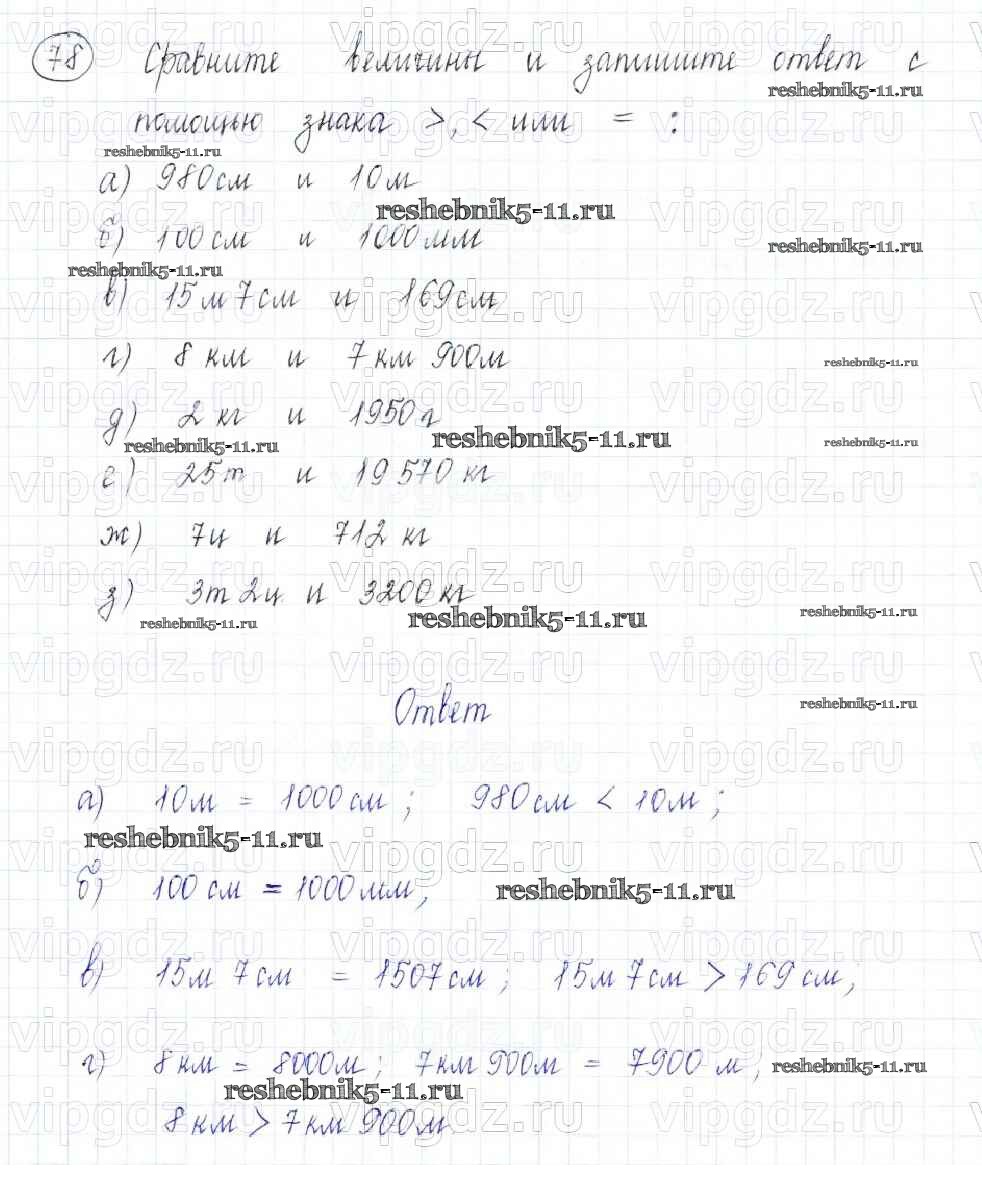 78 Сравните величины и запишите ответ с
reshebnik5-11.ru
помощью знака >, < или = :
reshebnik5-11.ru
а) 980 см и 10 м
reshebnik5-11.ru
б) 100 см и 1000 мм
reshebnik5-11.ru
reshebnik5-11.ru
в) 15 м 7 см и 169 см
г) 8 км и 7 км 900 м
reshebnik5-11.ru
д) 2 кг и 1950 г
reshebnik5-11.ru reshebnik5-11.ru reshebnik5-11.ru
е) 25 т и 19 570 кг
ж) 7 ц и 712 кг
з) 3 т 2 ц и 3200 кг
reshebnik5-11.ru reshebnik5-11.ru reshebnik5-11.ru
Ответ
reshebnik5-11.ru
а) 10 м = 1000 см ; 980 см < 10 м ;
reshebnik5-11.ru
б) 100 см = 1000 мм,
reshebnik5-11.ru
в) 15 м 7 см = 1507 см ; 15 м 7 см > 169 см,
г) 8 км = 8000 м ; 7 км 900 м = 7900 м ;
reshebnik5-11.ru
reshebnik5-11.ru
8 км > 7 км 900 м
vipgdz.ru